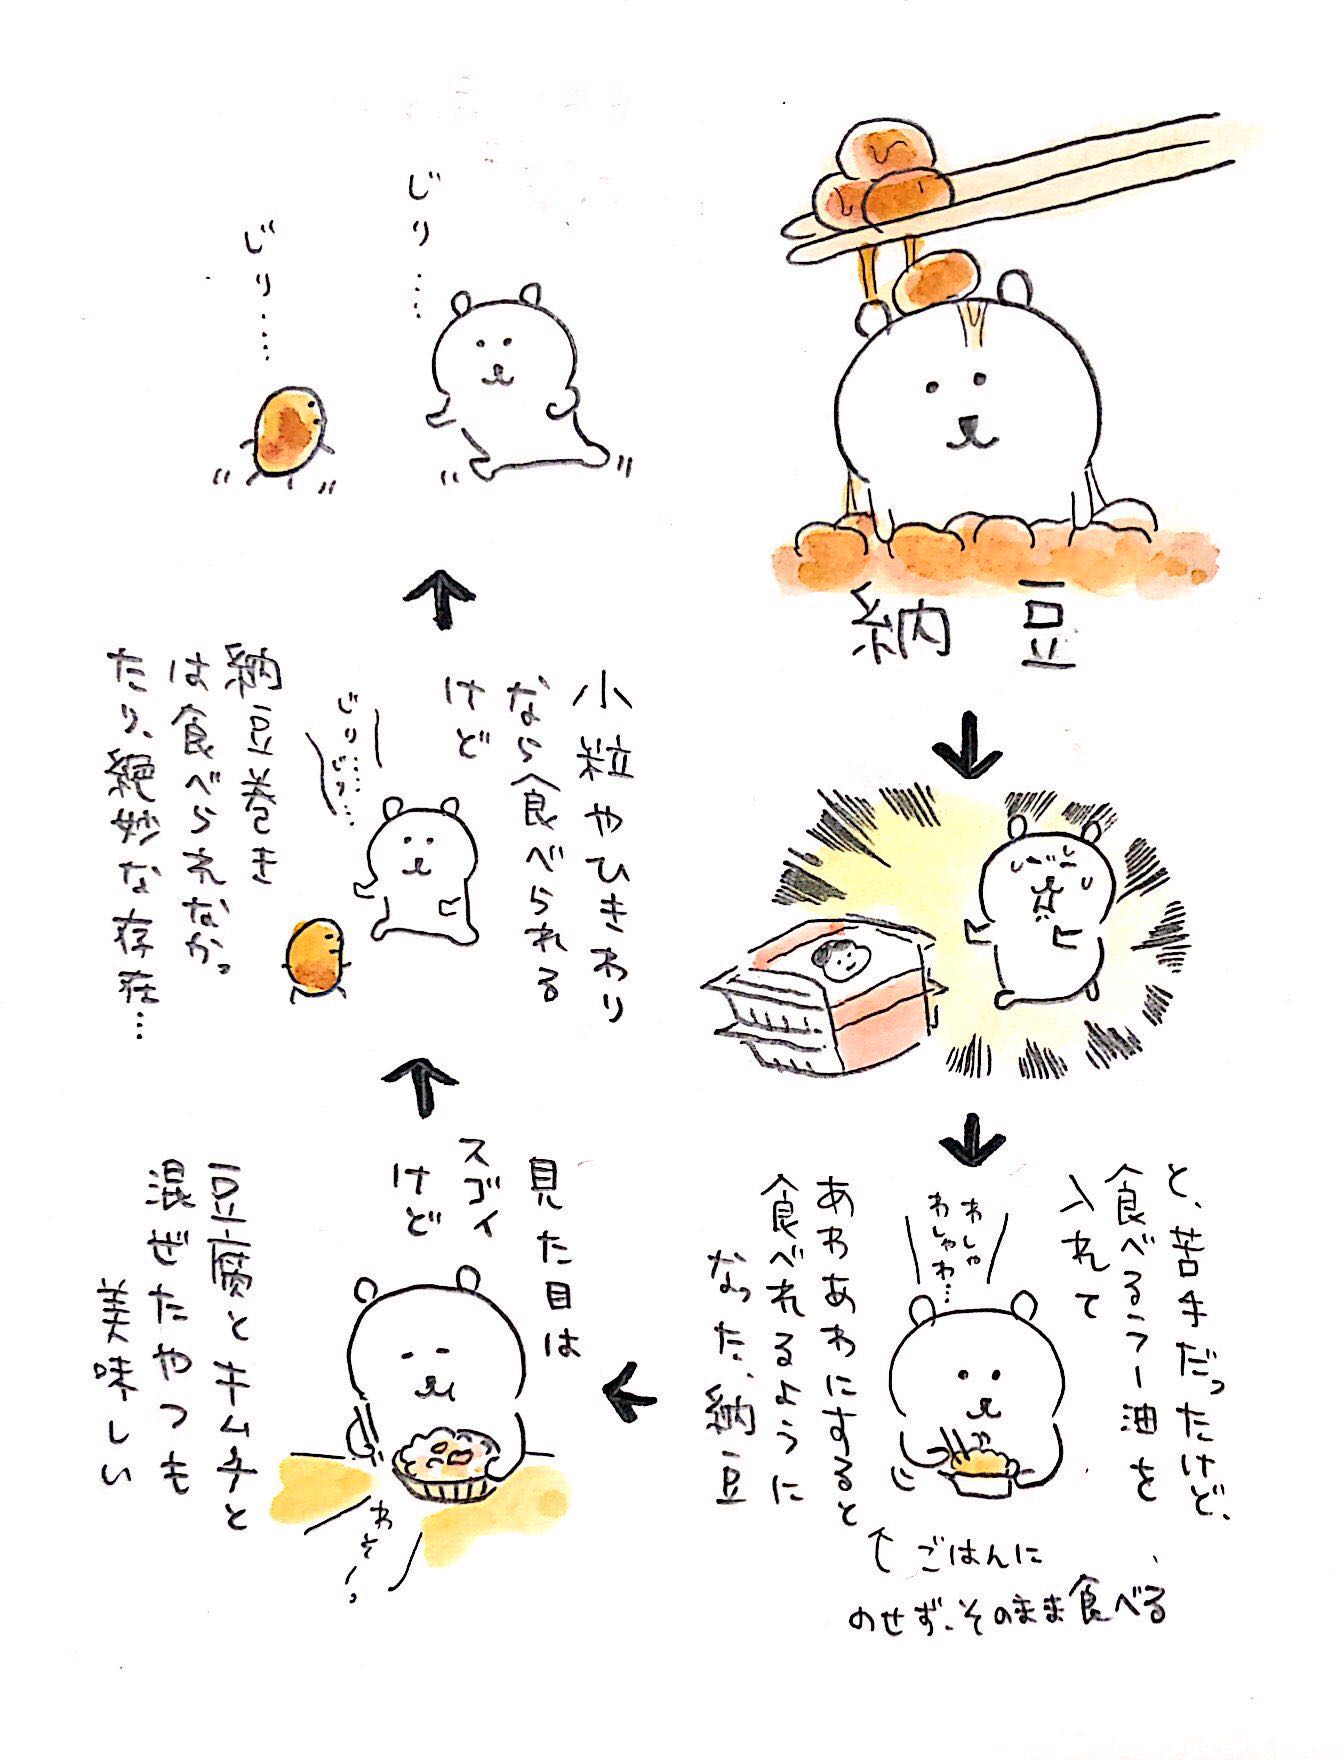 納豆
と、苦手だったけど、
食べるラー油を
入れて
わしゃ
わしゃわ…
あわあわにすると
食べれるように
なった、納豆
↑ごはんに
のせず、そのまま食べる
見た目は
スゴイ
けど
わそーっ
豆腐とキムチと
混ぜたやつも
美味しい
小粒やひきわり
なら食べられる
けど
じり……
じり…
納豆巻き
は食べられなか
ったり、絶妙な存在…
じり……
じり……